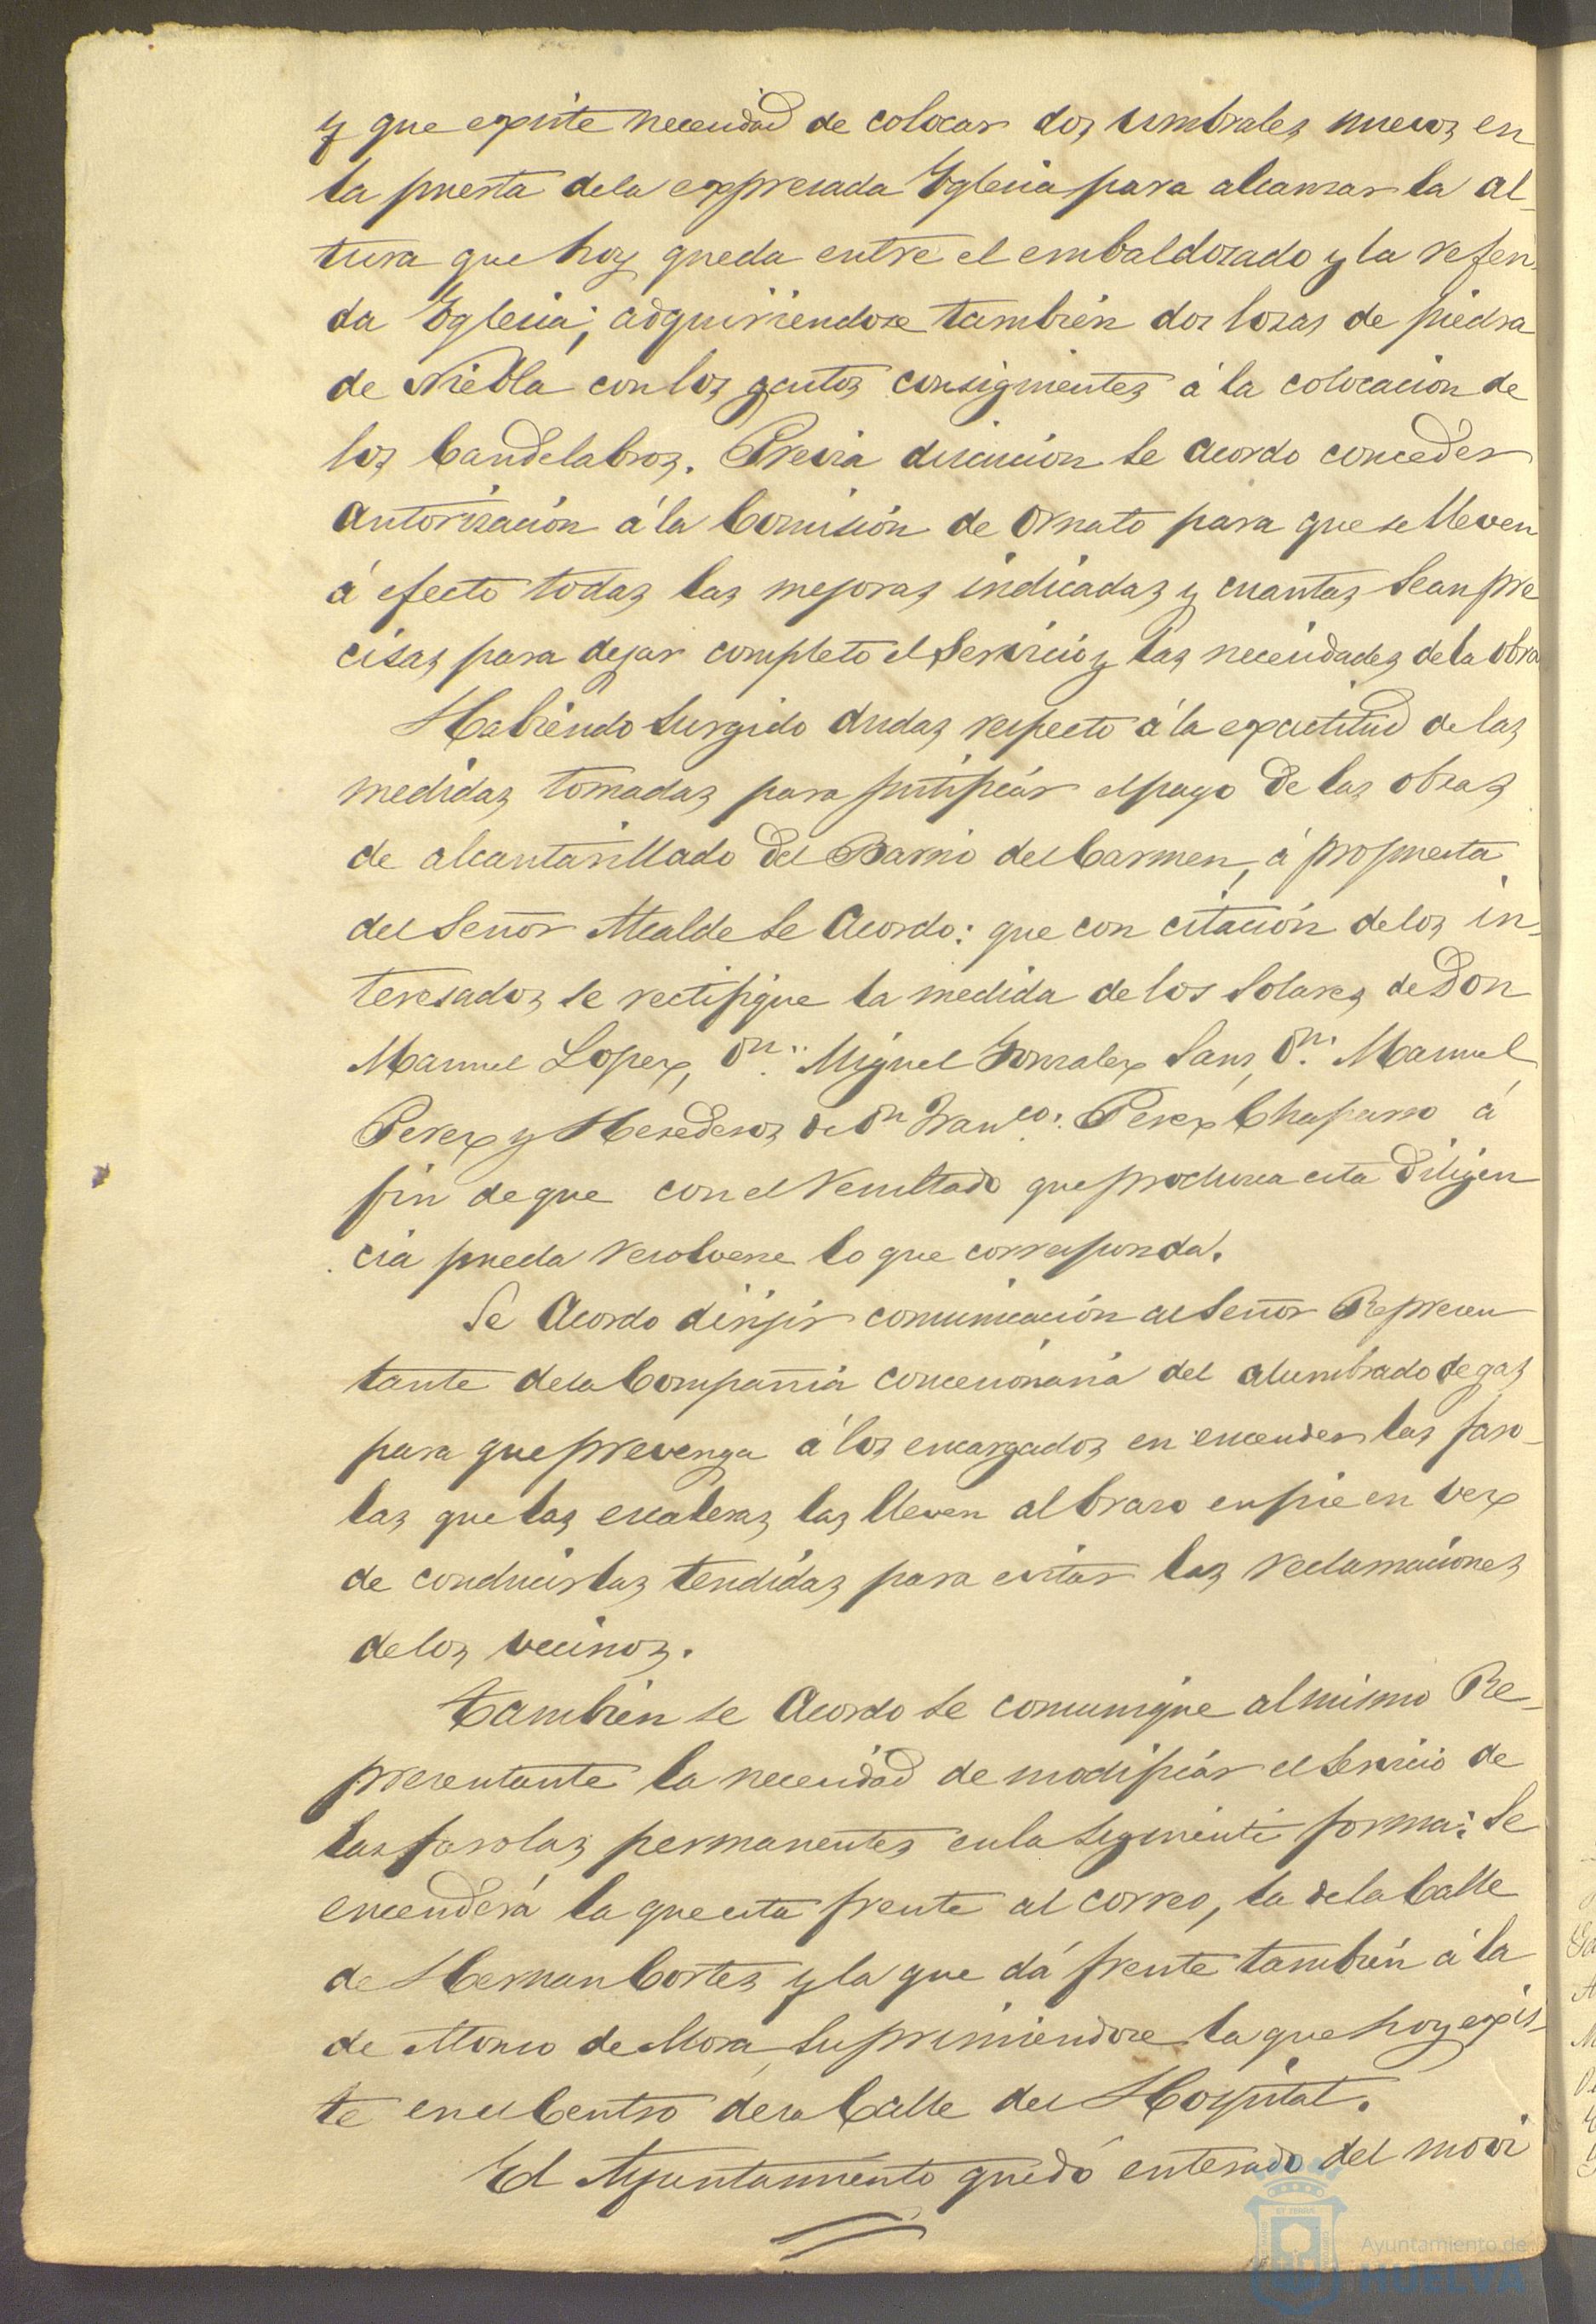 y que existe necesidad de colocar dos umbrales nuevos en
la puerta dela expresada Yglesia para alcanzar la al-
tura que hoy queda entre el embaldozado y la referi-
da Yglesia; adquiriendose también dos losas de piedra
de Niebla con los gastos consiguientes á la colocación de
los Candelabros. Previa discucion se acordo conceder
autorización á la Comisión de Ornato para que se lleven
á efecto todas las mejoras indicadas y cuantas sean pre
cisas para dejar completo el servicio y las necesidades de la obra
Habiendo surgido dudas respecto á la exactitud de las
medidas tomadas para justificar el pago de las obras
de alcantarillado del Barrio del Carmen, á propuesta
del Señor Alcalde se Acordo: que con citación delos in-
teresados se rectifique la medida de los solares de Don
Manuel Lopez, Dn. Miguel Gonzalez Sanz, Dn. Manuel
Perez y Herederos de Dn Franco. Perez Chaparro á
fin de que con el resultado que produzca esta diligen
cia pueda resolverse lo que corresponda.
Se Acordo dirijir comunicación al Señor Represen
tante dela Compañia concesionaria del alumbrado de gas
para que prevenga á los encargados en encender las faro-
las que las escaleras las lleven al brazo en pie en vez
de conducirlas tendidas para evitar las reclamaciones
delos vecinos.
También se Acordo se comunique al mismo Re-
presentante la necesidad de modificar el servicio de
las farolas permanentes en la siguiente forma: Se
encenderá la que esta frente al correo, la dela Calle
de Hernan Cortes y la que dá frente también á la
de Alonso de Mora suprimiendose la que hoy exis-
te en el Centro dela Calle del Hospital.
El Ayuntamiento quedó enterado del movi
Ayuntamiento de
HUELVA